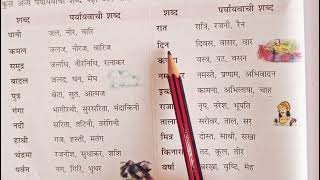 शब्द पर्यायवाची शब्द शब्द पर्यायवाची शब्द
पानी जल, नीर, वारि रात रात्रि, रजनी, रैन
कमल जलज, नीरज, वारिज दिन दिवस, वासर, वार
समुद्र जलधि, नीरनिधि, रत्नाकर वस्त्र, पट, वसन
बादल जलद, घन, मेघ नमस्ते, प्रणाम, अभिवादन
पुत्र बेटा, सुत, आत्मज कामना, अभिलाषा, चाह
गंगा भागीरथी, सुरसरिता, मंदाकिनी राजा नृप, नरेश, भूपति
नदी सरिता, तटिनी, तरंगिनी तालाब सर, सरोवर
हाथी गज, हस्ती, मतंग मित्र दोस्त, साथी, सखा
चंद्रमा रजनीश, सुधाकर, शशि किनारा तट, कूल, तीर
पर्वत नग, गिरि, भूधर वर्षा बरखा, वृष्टि, मेह